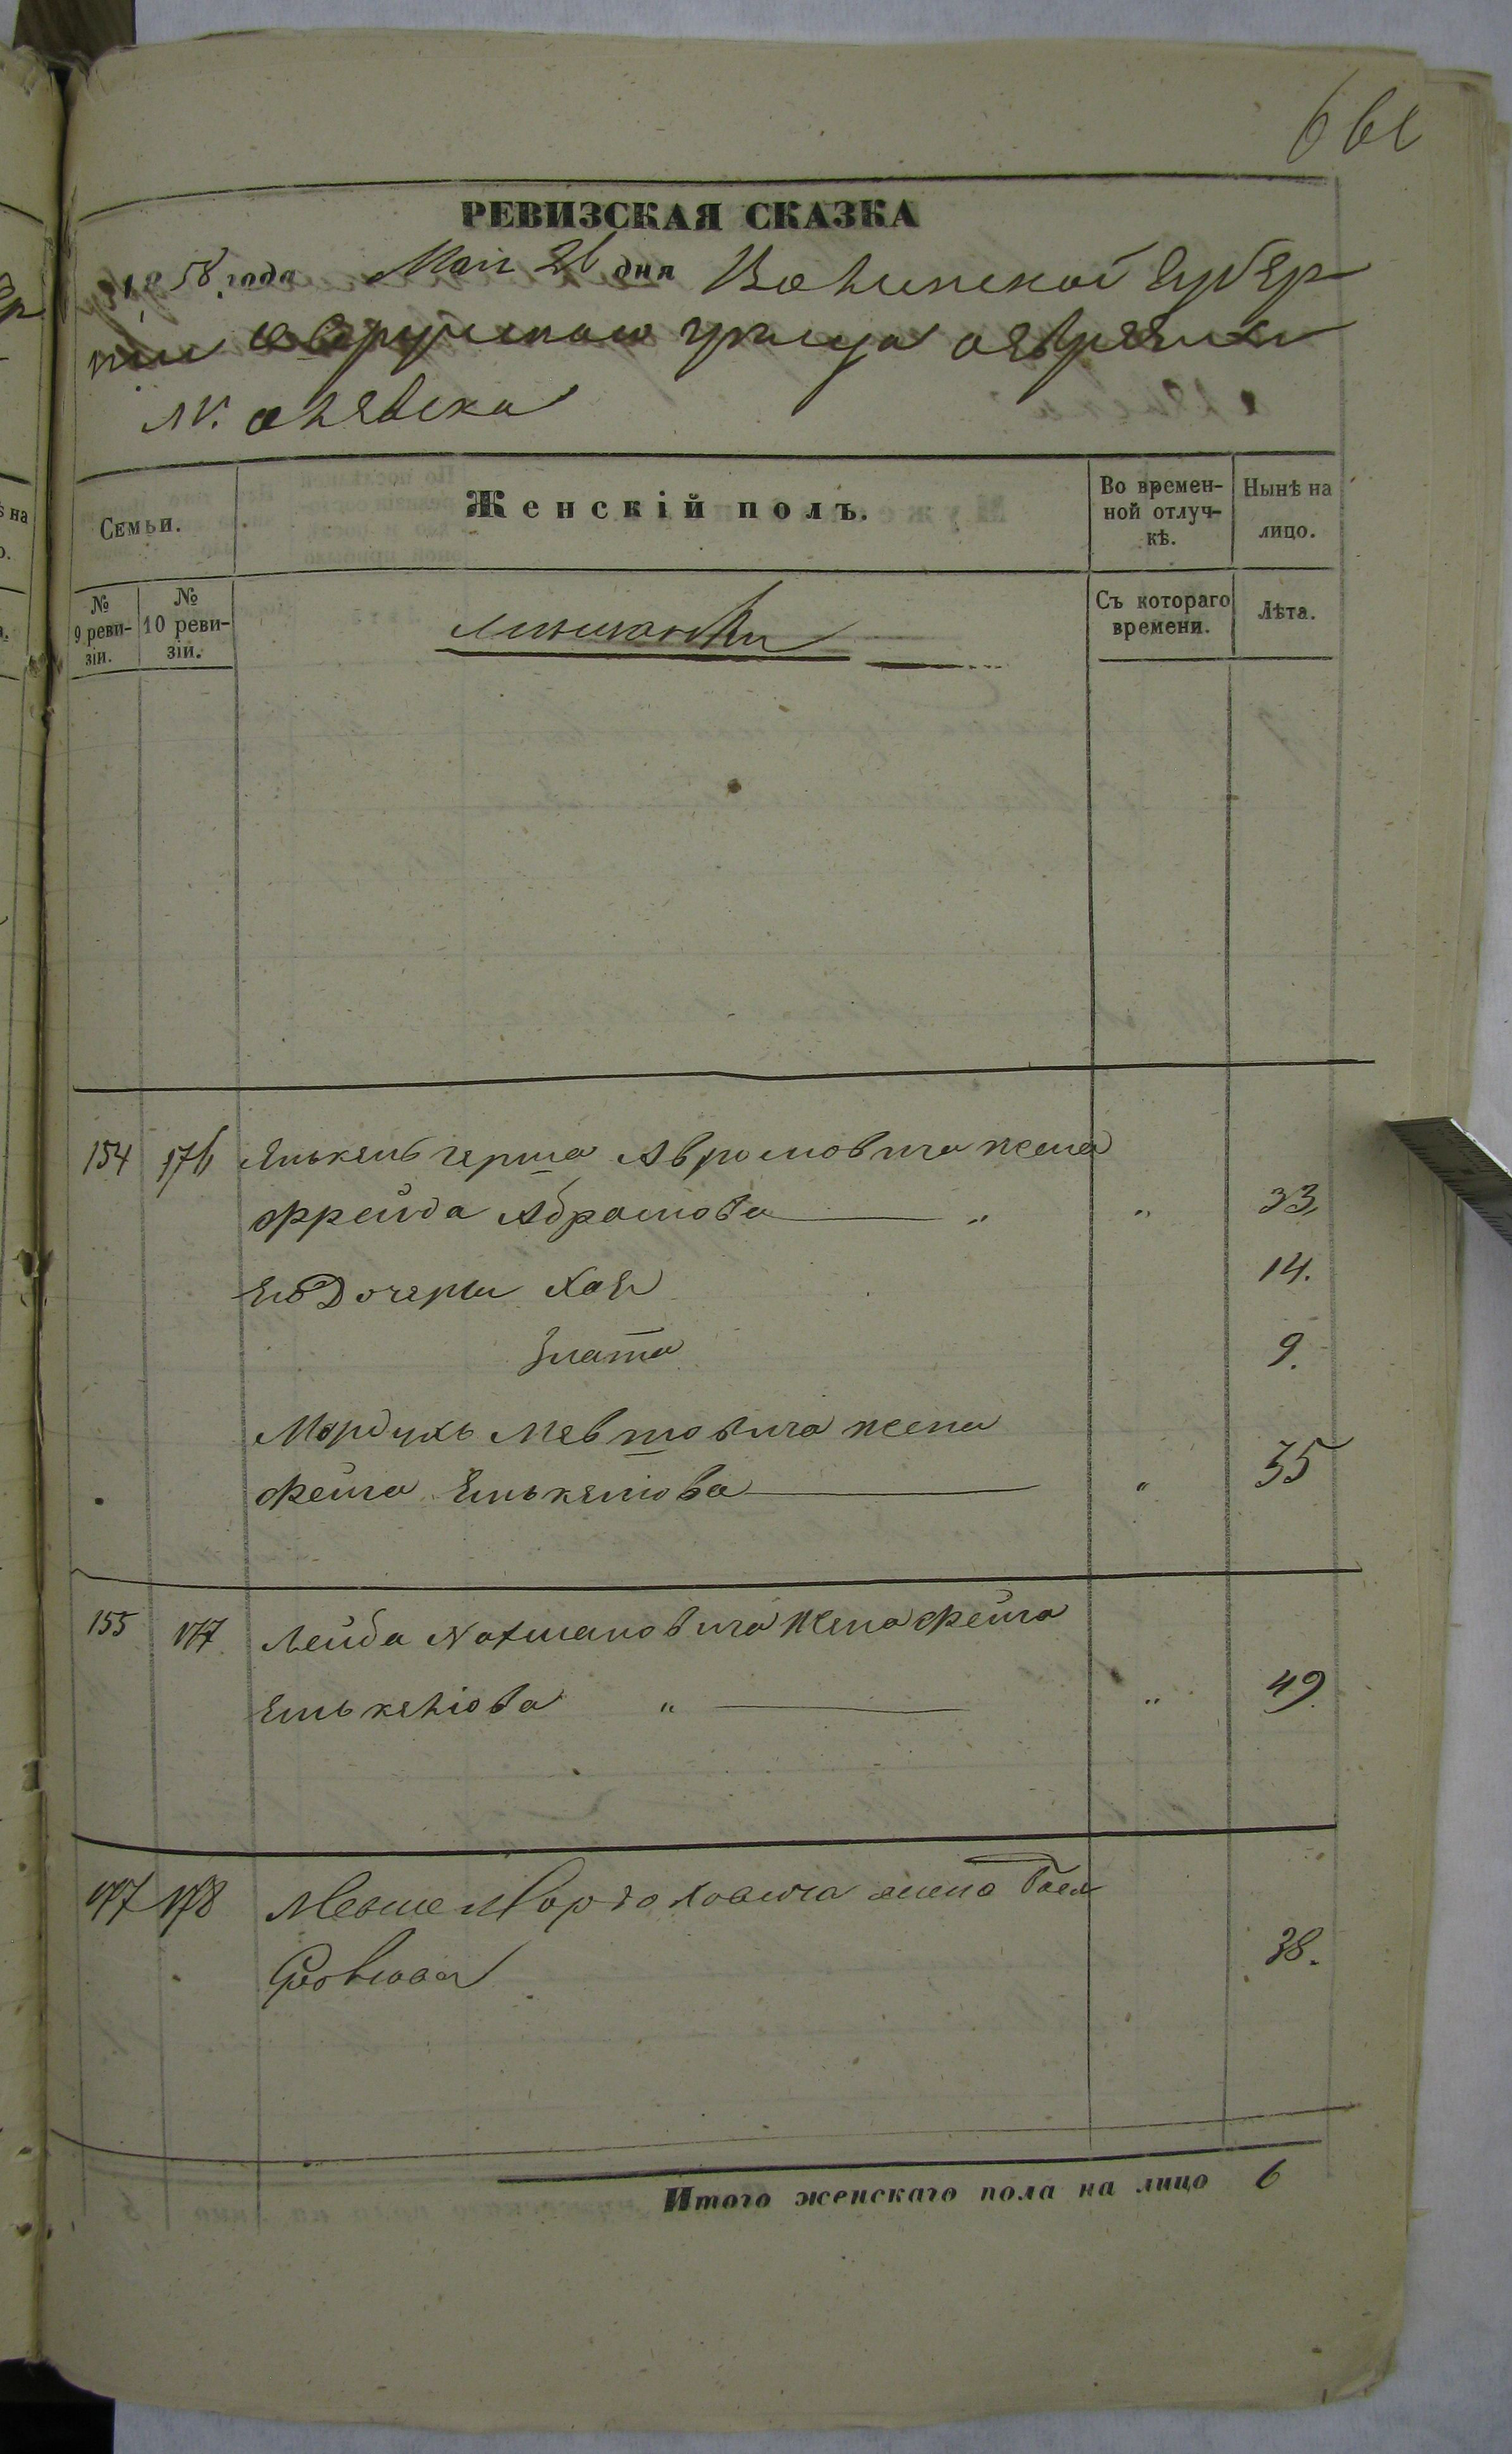 РЕВИЗСКАЯ СКАЗКА
1858 года Мая 26 дня Волынской губер
нии Овручскаго уезда о еврееихъ
м. Олевска
Семьи.
Женскій полъ.
Во времен-
ной отлуч-
кѣ.
Нынѣ на
лицо.
№
9 реви-
зіи.
№
10 реви-
зіи.
Съ котораго
времени.
Лѣта.
154 176 Янкель Герша Авромовича жена
Фрейда Абрамова " " 33.
Его Дочери Хая 14.
Злата 9.
Мордухъ Мевшовича жена
Фейга Енькелiова " 35
155 177 Лейба Нахмановича жена Фейга
Енькелiова " " 49.
177 178 Мевше Мордоховича жена
38.
Итого женскаго пола на лицо 6